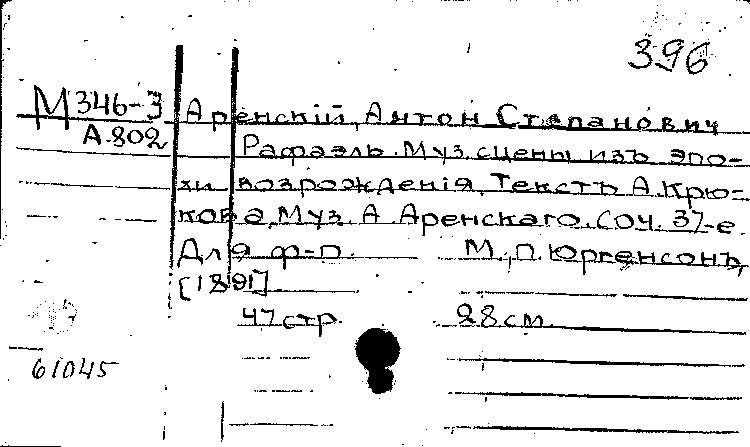 396
М346-3
А.802
Аренскій, Антон Степанович
Рафаэль. Муз. сцены изъ эпо-
хи возрожденія. Текстъ А. Крю-
кова, Муз. А. Аренскаго. Соч. 37-е.
Для ф-п. М., П. Юргенсонъ,
[1891]
47 стр. 28 см.
61045